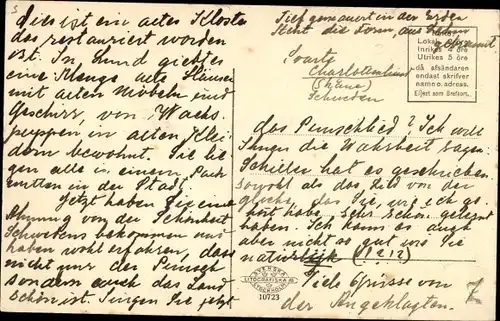 3
dies ist ein altes Kloster
das restauriert worden
ist. In Lund giebt es
eine Menge alte Häuser
mit alten Möbeln und
Geschirr, von Wachs-
puppen in alten Klei-
dern bewohnt. Sie lie-
gen alle in einem Park
mitten in der Stadt.
Jetzt haben Sie eine
Ahnung von der Schönheit
Schwedens bekommen und
haben wohl erfahren, dass
nicht nur der Punsch
sondern auch das Land
schön ist. Singen Sie jetzt
Tief gemauert in der Erden
Steht die Form, aus Lehm
gebrannt.
Svarte
Charlottenlund
(Skåne)
Schweden
Lokal
Inrikes 4 öre
Utrikes 5 öre
då afsändaren
endast skrifver
namn o. adress.
Eljest som Brefkort.
das Punschlied? Ich will
Ihnen die Wahrheit sagen.
Schiller hat es geschrieben
sowohl als das Lied von der
Glocke, das Sie, wie ich ge-
hört habe, sehr schön gelernt
haben. Ich kann es auch
aber nicht so gut wie Sie
natürlich (!?!?)
Viele Grüsse von
der Angeklagten.
SVENSKA
LITOGRAFISKA
STOCKHOLM
10723
7